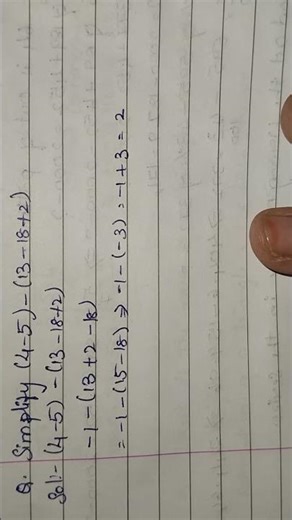 Q. Simplify (4-5)-(13-18+2)
Sol:- (4-5)-(13-18+2)
-1-(13+2-18)
= -1-(15-18) ⇒ -1-(-3) = -1+3 = 2